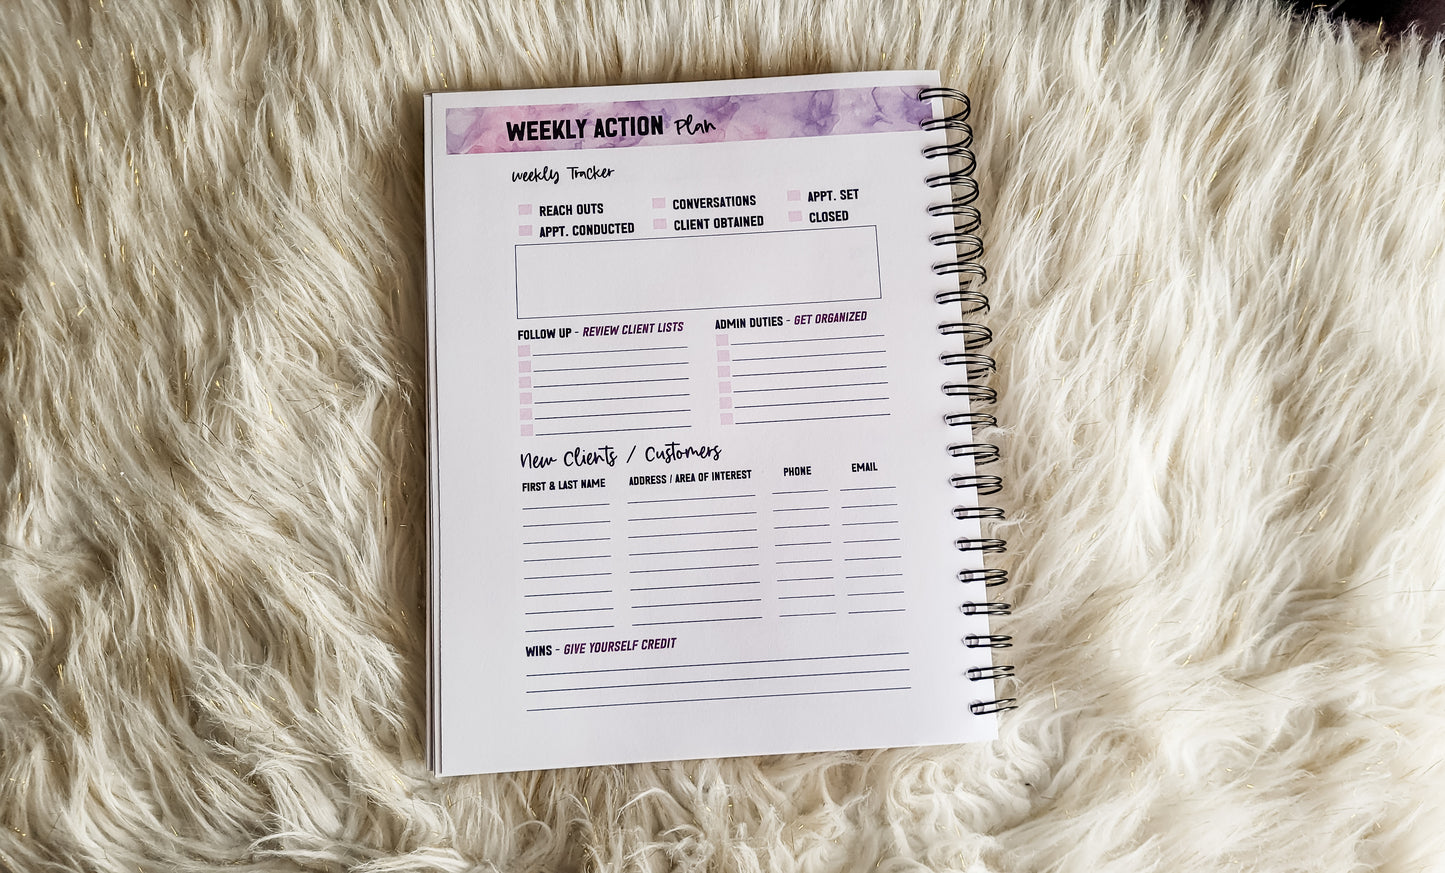 WEEKLY ACTION Plan
weekly Tracker
REACH OUTS CONVERSATIONS APPT. SET
APPT. CONDUCTED CLIENT OBTAINED CLOSED
FOLLOW UP - REVIEW CLIENT LISTS ADMIN DUTIES - GET ORGANIZED
New Clients / Customers
FIRST & LAST NAME ADDRESS / AREA OF INTEREST PHONE EMAIL
WINS - GIVE YOURSELF CREDIT